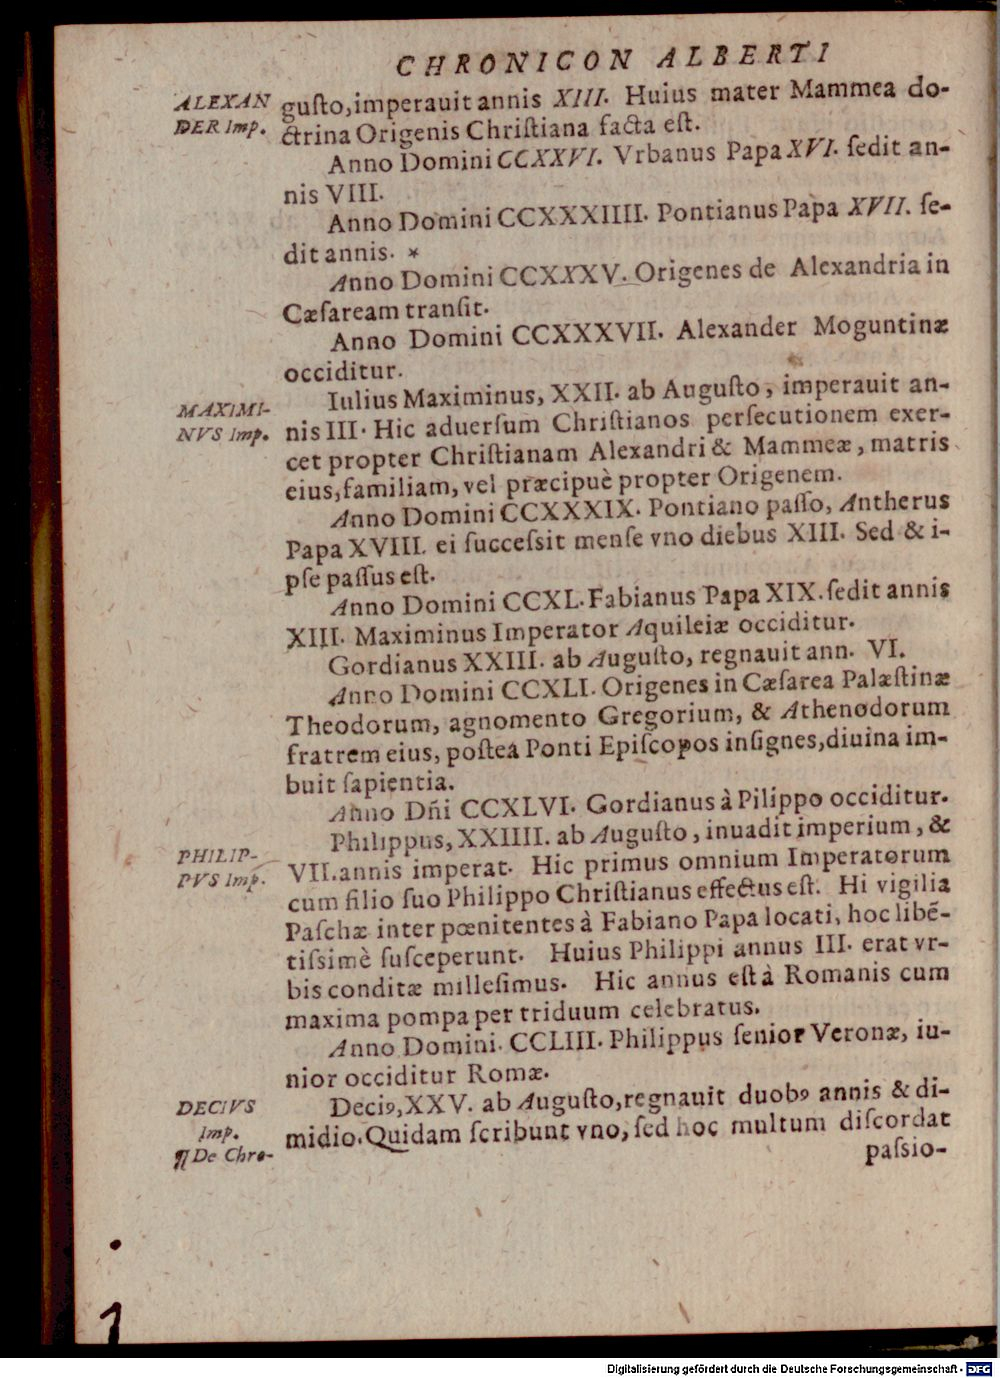 CHRONICON ALBERTI
ALEXAN
DER Imp.
guſto,imperauit annis XIII. Huius mater Mammea do-
ctrina Origenis Chriſtiana facta eſt.
Anno Domini CCXXVI. Vrbanus Papa XVI. ſedit an-
nis VIII.
Anno Domini CCXXXIIII. Pontianus Papa XVII. ſe-
dit annis. *
Anno Domini CCXXXV. Origenes de Alexandria in
Cæſaream tranſit.
Anno Domini CCXXXVII. Alexander Moguntinæ
occiditur.
MAXIMI-
NVS Imp.
Iulius Maximinus, XXII. ab Auguſto, imperauit an-
nis III. Hic aduerſum Chriſtianos perſecutionem exer-
cet propter Chriſtianam Alexandri & Mammeæ, matris
eius,familiam, vel præcipuè propter Origenem.
Anno Domini CCXXXIX. Pontiano paſſo, Antherus
Papa XVIII. ei ſucceſsit menſe vno diebus XIII. Sed & i-
pſe paſſus eſt.
Anno Domini CCXL. Fabianus Papa XIX. ſedit annis
XIII. Maximinus Imperator Aquileiæ occiditur.
Gordianus XXIII. ab Auguſto, regnauit ann. VI.
Anno Domini CCXLI. Origenes in Cæſarea Palæſtinæ
Theodorum, agnomento Gregorium, & Athenodorum
fratrem eius, poſtea Ponti Epiſcopos inſignes,diuina im-
buit ſapientia.
Anno Dñi CCXLVI. Gordianus à Pilippo occiditur.
PHILIP-
PVS Imp.
Philippus, XXIIII. ab Auguſto, inuadit imperium, &
VII.annis imperat. Hic primus omnium Imperatorum
cum filio ſuo Philippo Chriſtianus effectus eſt. Hi vigilia
Paſchæ inter pœnitentes à Fabiano Papa locati, hoc libẽ-
tiſsimè ſuſceperunt. Huius Philippi annus III. erat vr-
bis conditæ milleſimus. Hic annus eſt à Romanis cum
maxima pompa per triduum celebratus.
Anno Domini. CCLIII. Philippus ſenior Veronæ, iu-
nior occiditur Romæ.
DECIVS
Imp.
¶ De Chro-
Deciꝰ,XXV. ab Auguſto,regnauit duobꝰ annis & di-
midio. Quidam ſcribunt vno, ſed hoc multum diſcordat
paſsio-
1
Digitalisierung gefördert durch die Deutsche Forschungsgemeinschaft - DFG